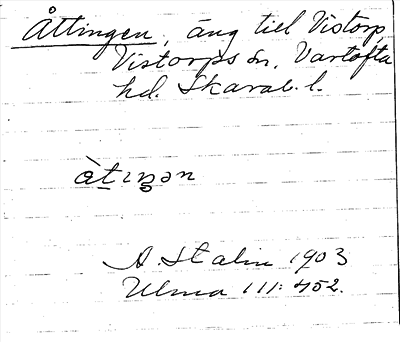 Åttingen, äng till Vistorp,
Vistorps sn, Vartofta
hd. Skarab. l.
àtıŋən
A. Stalin 1903
Ulma 111: 452.